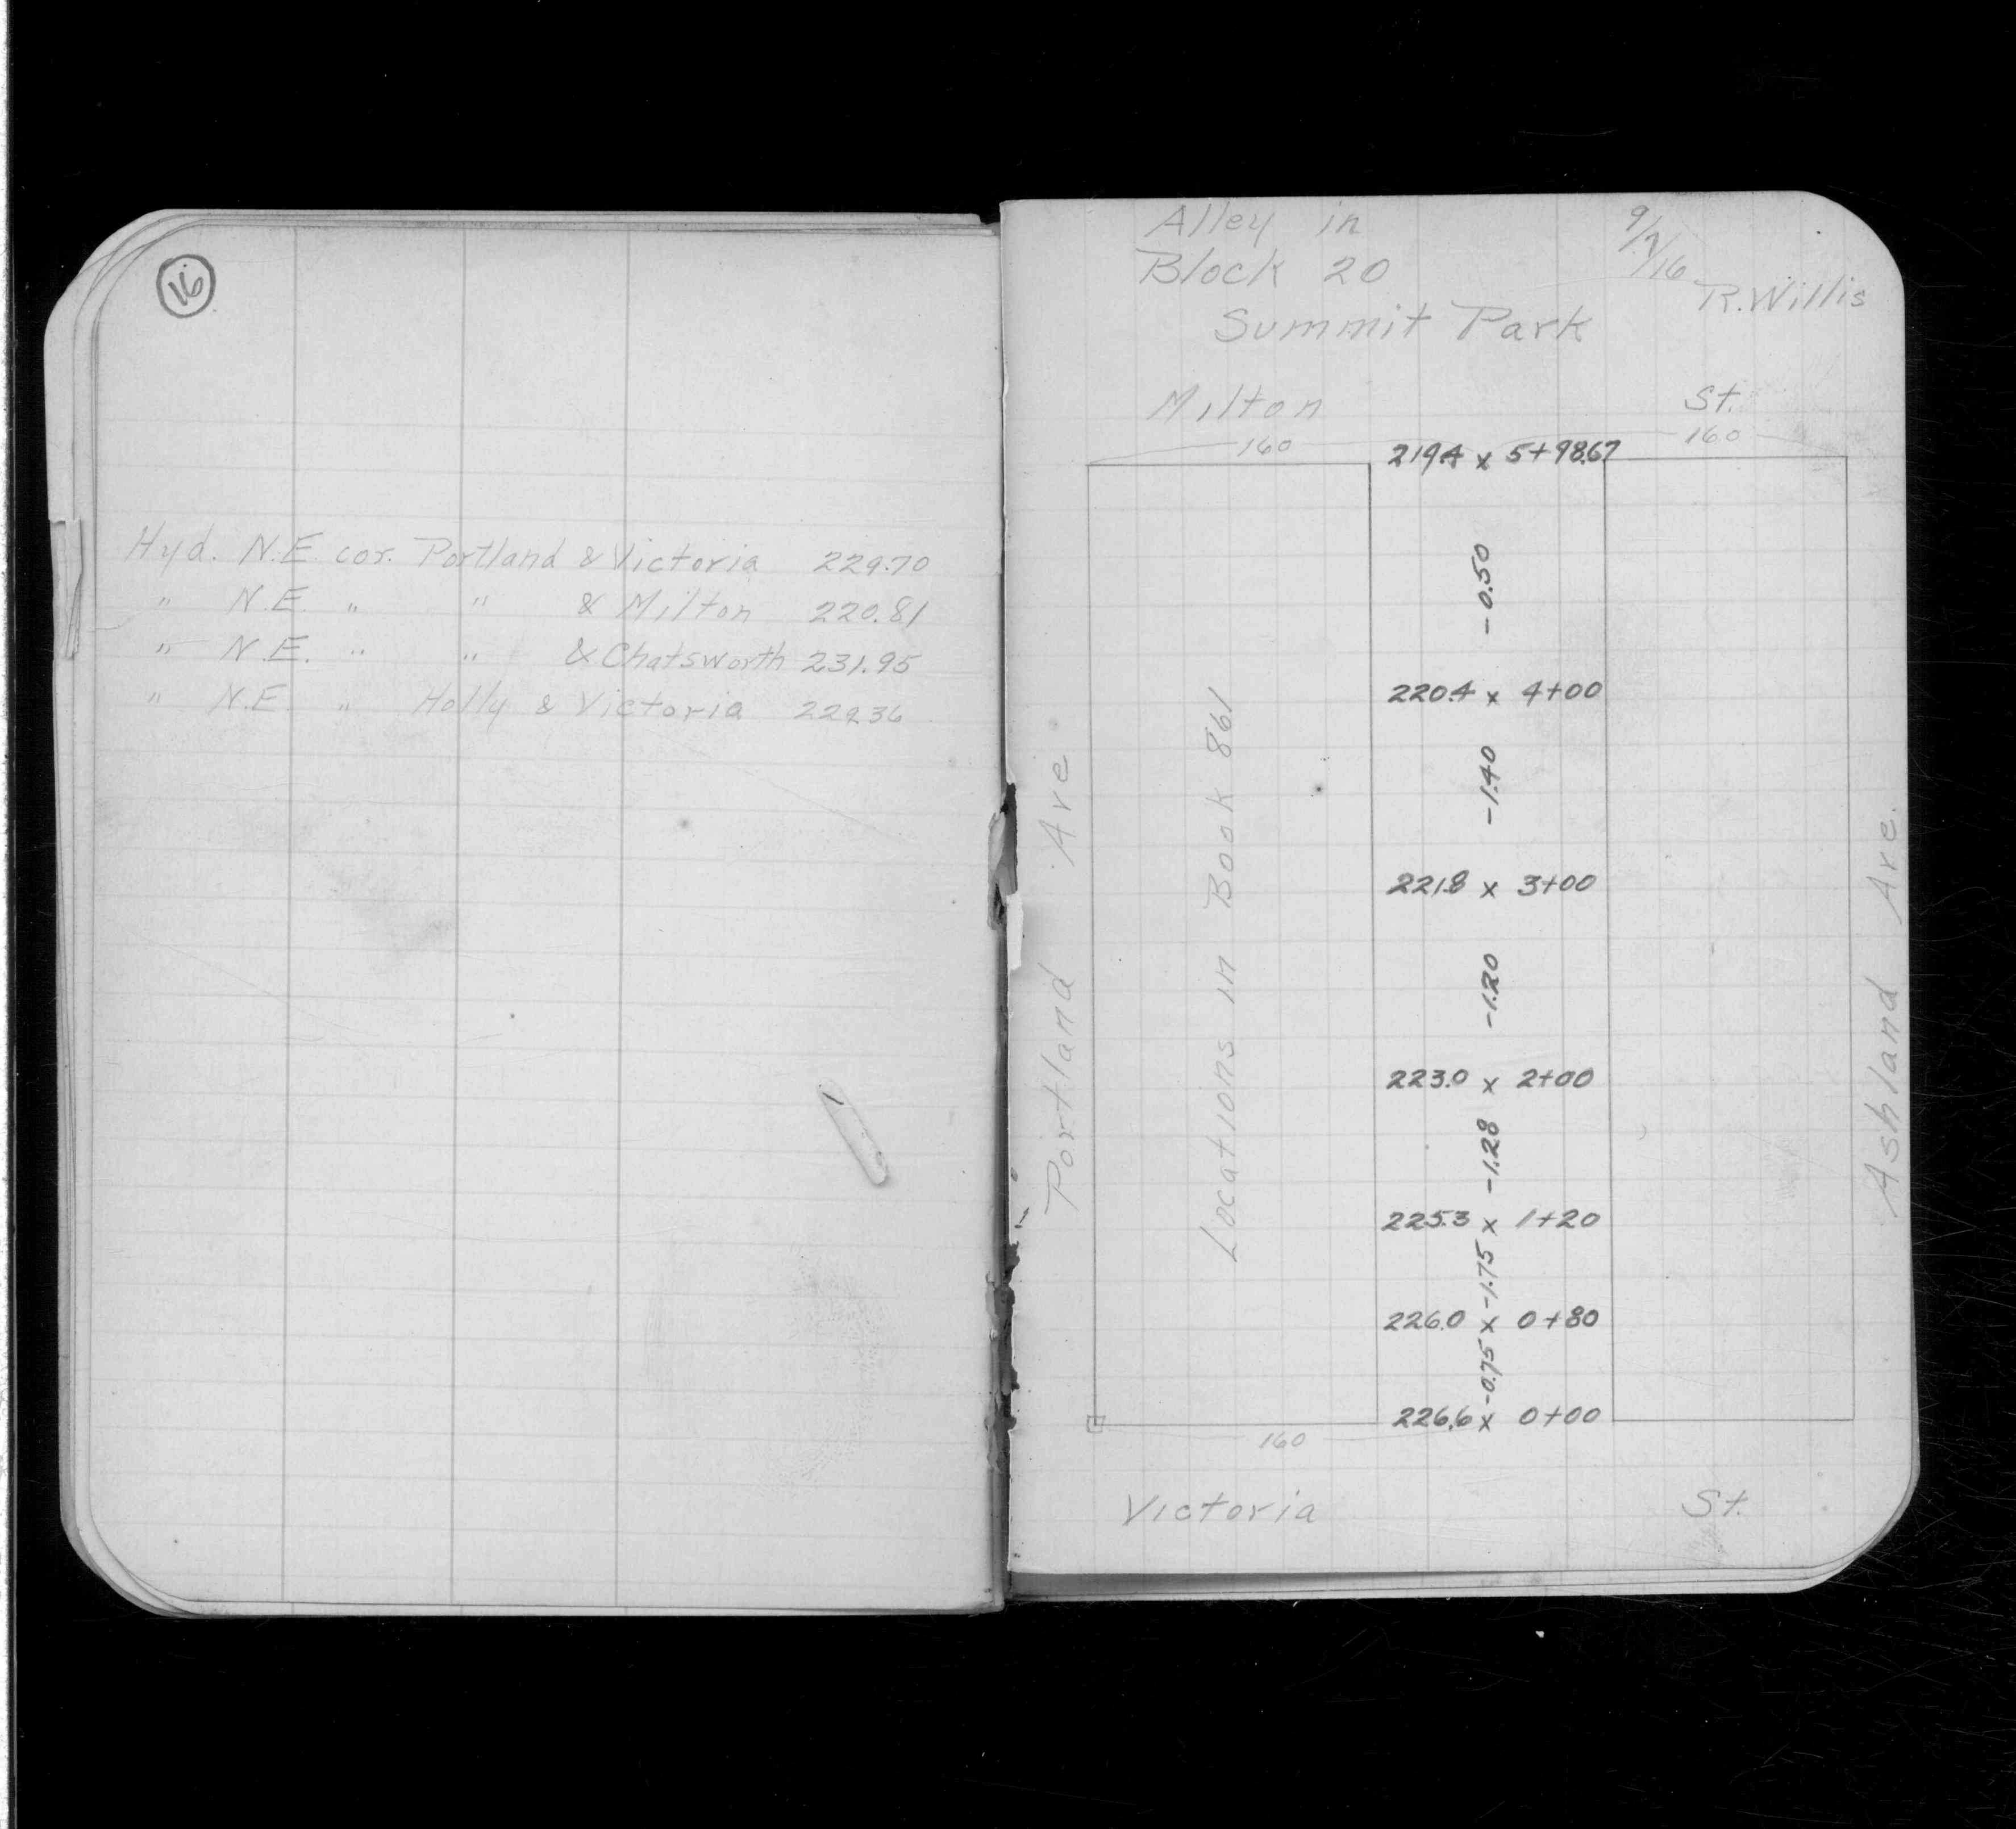 16
Hyd. N.E. cor. Portland & Victoria 229.70
" N.E. " " & Milton 220.81
" N.E. " " & Chatsworth 231.95
" N.E " Holly & Victoria 229.36
Alley in
Block 20
Summit Park
R. Willis
Milton St.
160 160
219.4 x 5+98.67
-0.50
220.4 x 4+00
-1.40
221.8 x 3+00
-1.20
223.0 x 2+00
-1.28
225.3 x 1+20
-1.75
226.0 x 0+80
-0.75
226.6 x 0+00
160
Portland Ave
Locations in Book 861
Ashland Ave.
Victoria St.